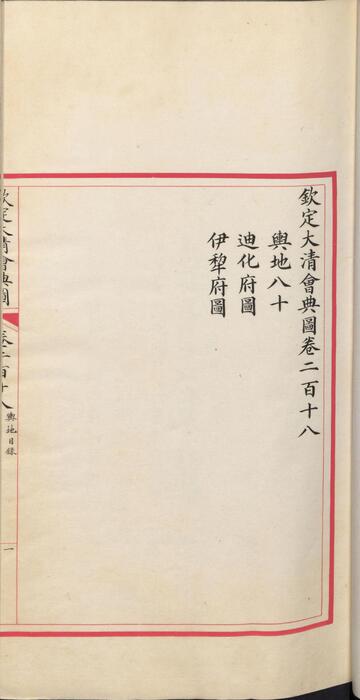 欽定大清會典圖卷二百十八
輿地八十
迪化府圖
伊犂府圖
欽定大清會典圖
卷二百十八
輿地目錄
一